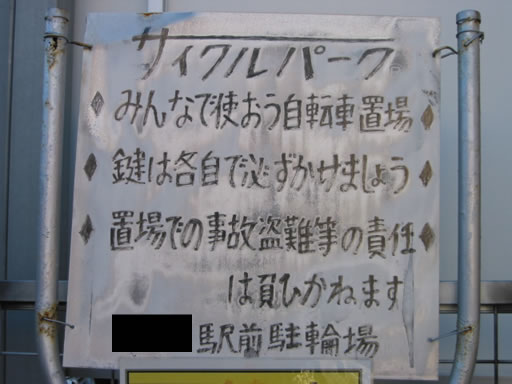 サイクルパーク
♦みんなで使おう自転車置場♦
♦鍵は各自で必ずかけましょう♦
♦置場での事故盗難等の責任♦
は負いかねます
駅前駐輪場